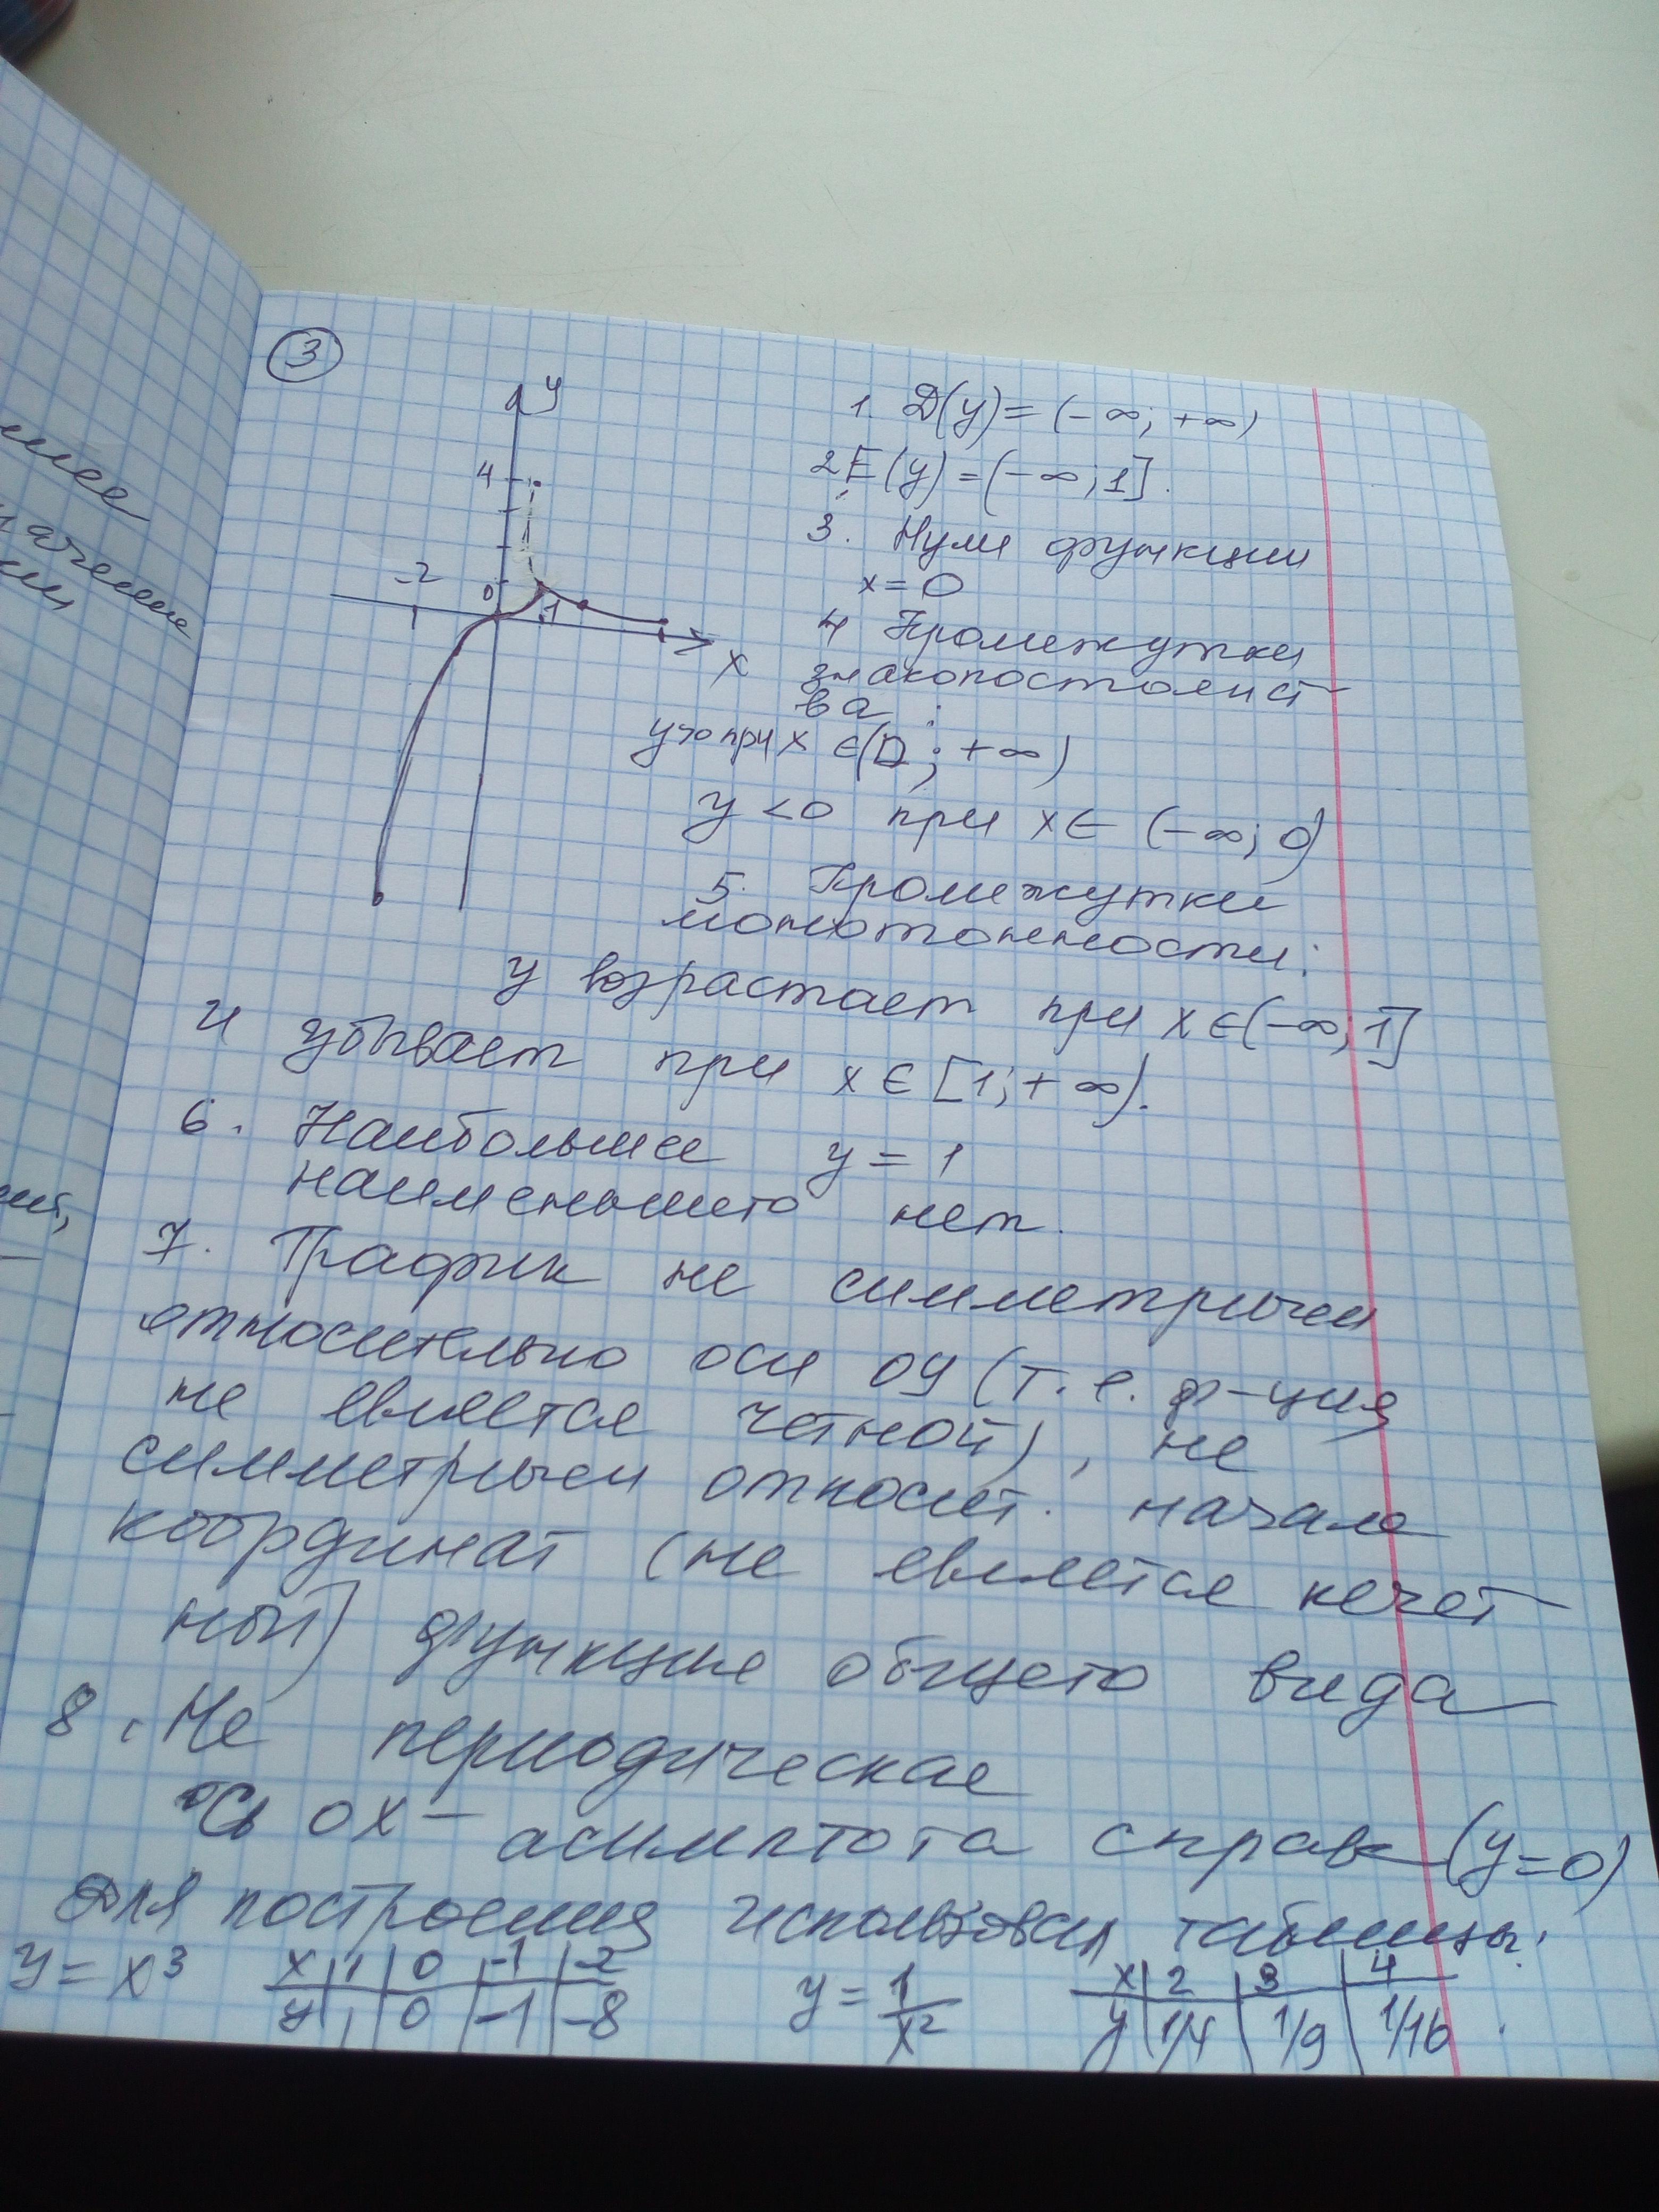 3
y
4
-2
0
1
x
1. D(y) = (-∞; +∞)
2. E(y) = (-∞; 1].
3. Нули функции
x = 0
4 Промежутки
знакопостоянст
ва :
y>0 при x ∈ (0; +∞)
y < 0 при x ∈ (-∞; 0)
5. Промежутки
монотонности:
y возрастает при x ∈ (-∞; 1]
и убывает при x ∈ [1; +∞).
6. Наибольшее y = 1
наименьшего нет.
7. График не симметричен
относительно оси ОУ (т.е. ф-ция
не является чётной), не
симметричен относит. начала
координат (не является нечет
ной) функция общего вида
8. Не периодическая
Ось ОХ - асимптота справа (y=0)
Для построения использовал таблицы:
y = x³ x 1 0 -1 -2 y = 1/x² x 2 3 4
y 1 0 -1 -8 y 1/4 1/9 1/16